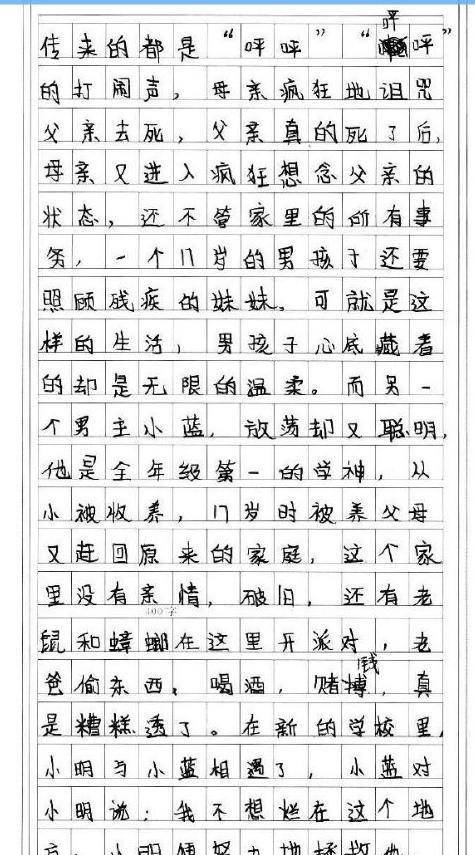 传来的都是“呯呯”“呯呯”
的打闹声，母亲疯狂地诅咒
父亲去死，父亲真的死了后，
母亲又进入疯狂想念父亲的
状态，还不管家里的所有事
务，一个17岁的男孩子还要
照顾残疾的妹妹。可就是这
样的生活，男孩子心底藏着
的却是无限的温柔。而另一
个男主小蓝，放荡却又聪明，
他是全年级第一的学神，从
小被收养，17岁时被养父母
又赶回原来的家庭，这个家
里没有亲情，破旧，还有老
400字
鼠和蟑螂在这里开派对，老
爸偷东西，喝酒，赌搏钱，真
是糟糕透了。在新的学校里，
小明与小蓝相遇了，小蓝对
小明说：我不想烂在这个地
方，小明便努力地拯救他